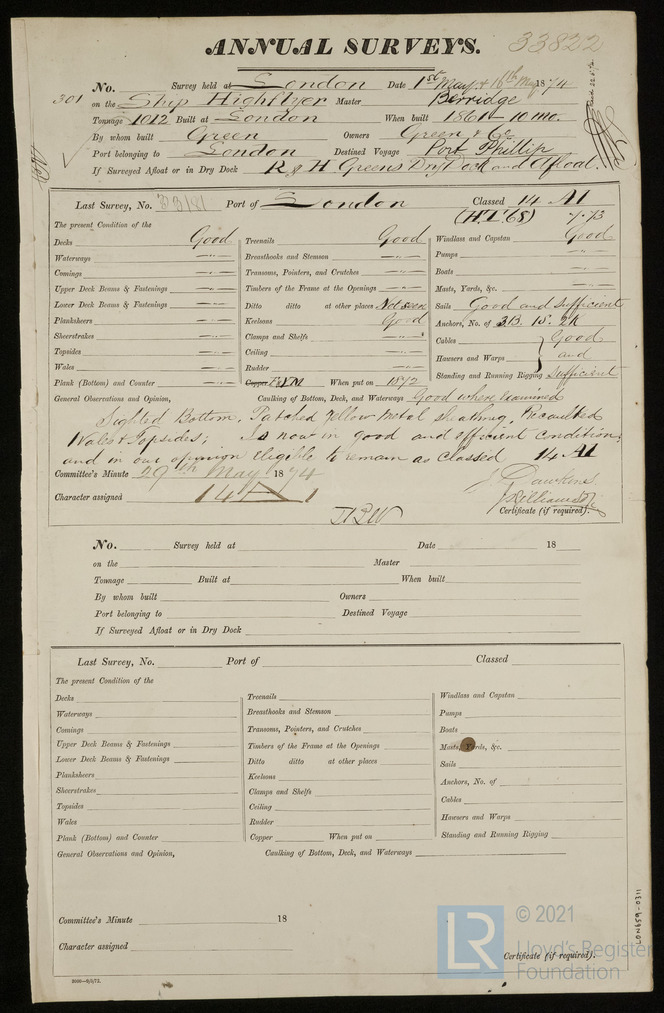 ANNUAL SURVEYS. 33822
No. Survey held at London Date 1st May & 16th May 1874
301 on the Ship Highflyer Master Berridge
Tonnage 1012 Built at London When built 1861 10 mo.
By whom built Green Owners Green & Co
Port belonging to London Destined Voyage Port Phillip
If Surveyed Afloat or in Dry Dock R & H Greens Dry Dock and Afloat.
Last Survey, No. 33181 Port of London Classed 14 A1
(H.T. 68) 7.73
The present Condition of the
Decks Good
Waterways "
Comings "
Upper Deck Beams & Fastenings "
Lower Deck Beams & Fastenings "
Planksheers "
Sheerstrakes "
Topsides "
Wales "
Plank (Bottom) and Counter "
Treenails Good
Breasthooks and Stemson "
Transoms, Pointers, and Crutches "
Timbers of the Frame at the Openings "
Ditto ditto at other places Not seen
Keelsons Good
Clamps and Shelfs "
Ceiling "
Rudder "
Copper F.Y.M When put on 1872
Windlass and Capstan Good
Pumps "
Boats "
Masts, Yards, &c. "
Sails Good and sufficient
Anchors, No. of 3B. 1S. 2K
Cables Good
Hawsers and Warps and
Standing and Running Rigging Sufficient
General Observations and Opinion, Caulking of Bottom, Deck, and Waterways Good where examined
Sighted Bottom, Patched Yellow Metal sheathing, Recaulked
Wales & Topsides; Is now in good and efficient condition,
and in our opinion eligible to remain as classed 14 A1
Committee's Minute 29th May 1874
Character assigned 14 A 1
J. Dawkins
Certificate (if required).
No. Survey held at Date 18
on the Master
Tonnage Built at When built
By whom built Owners
Port belonging to Destined Voyage
If Surveyed Afloat or in Dry Dock
Last Survey, No. Port of Classed
The present Condition of the
Decks
Waterways
Comings
Upper Deck Beams & Fastenings
Lower Deck Beams & Fastenings
Planksheers
Sheerstrakes
Topsides
Wales
Plank (Bottom) and Counter
Treenails
Breasthooks and Stemson
Transoms, Pointers, and Crutches
Timbers of the Frame at the Openings
Ditto ditto at other places
Keelsons
Clamps and Shelfs
Ceiling
Rudder
Copper When put on
Windlass and Capstan
Pumps
Boats
Masts, Yards, &c.
Sails
Anchors, No. of
Cables
Hawsers and Warps
Standing and Running Rigging
General Observations and Opinion, Caulking of Bottom, Deck, and Waterways
Committee's Minute 18
Character assigned
Certificate (if required).
LON656-0311
LR © 2021
Lloyd's Register
Foundation